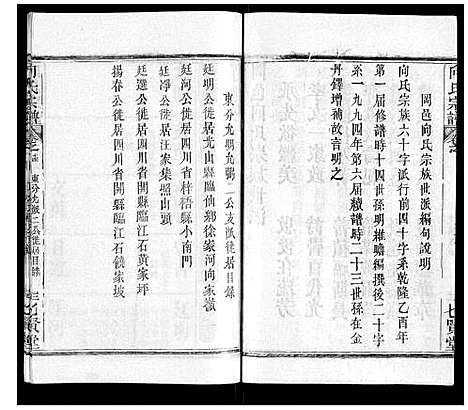 岡邑向氏宗族世派編句說明
向氏宗族六十字派行前四十字系乾隆乙酉年
第一届修譜時十四世孫明維瞻編撰後二十字
系一九九四年第六届續譜時二十三世孫在金
丹鐸增補故言明之
七賢堂
向氏宗譜
東分允明允鵬二公支派徙居目録
廷明公徙居樂山縣臨仙鄉徐家河向家嶺
廷河公徙居四川省梓梧縣小南門
廷選公徙居汪家集照山頭
廷連公徙居四川省開縣臨江石黄家坪
揚春公徙居四川省開縣臨江石鐵家坡
向氏宗譜
東分允鵬二公徙居目録
七賢堂